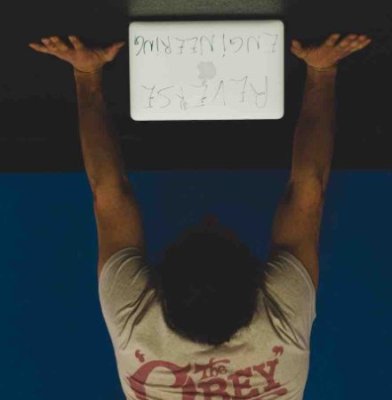 REVERSE
ENGINEERING
"The
OBEY"